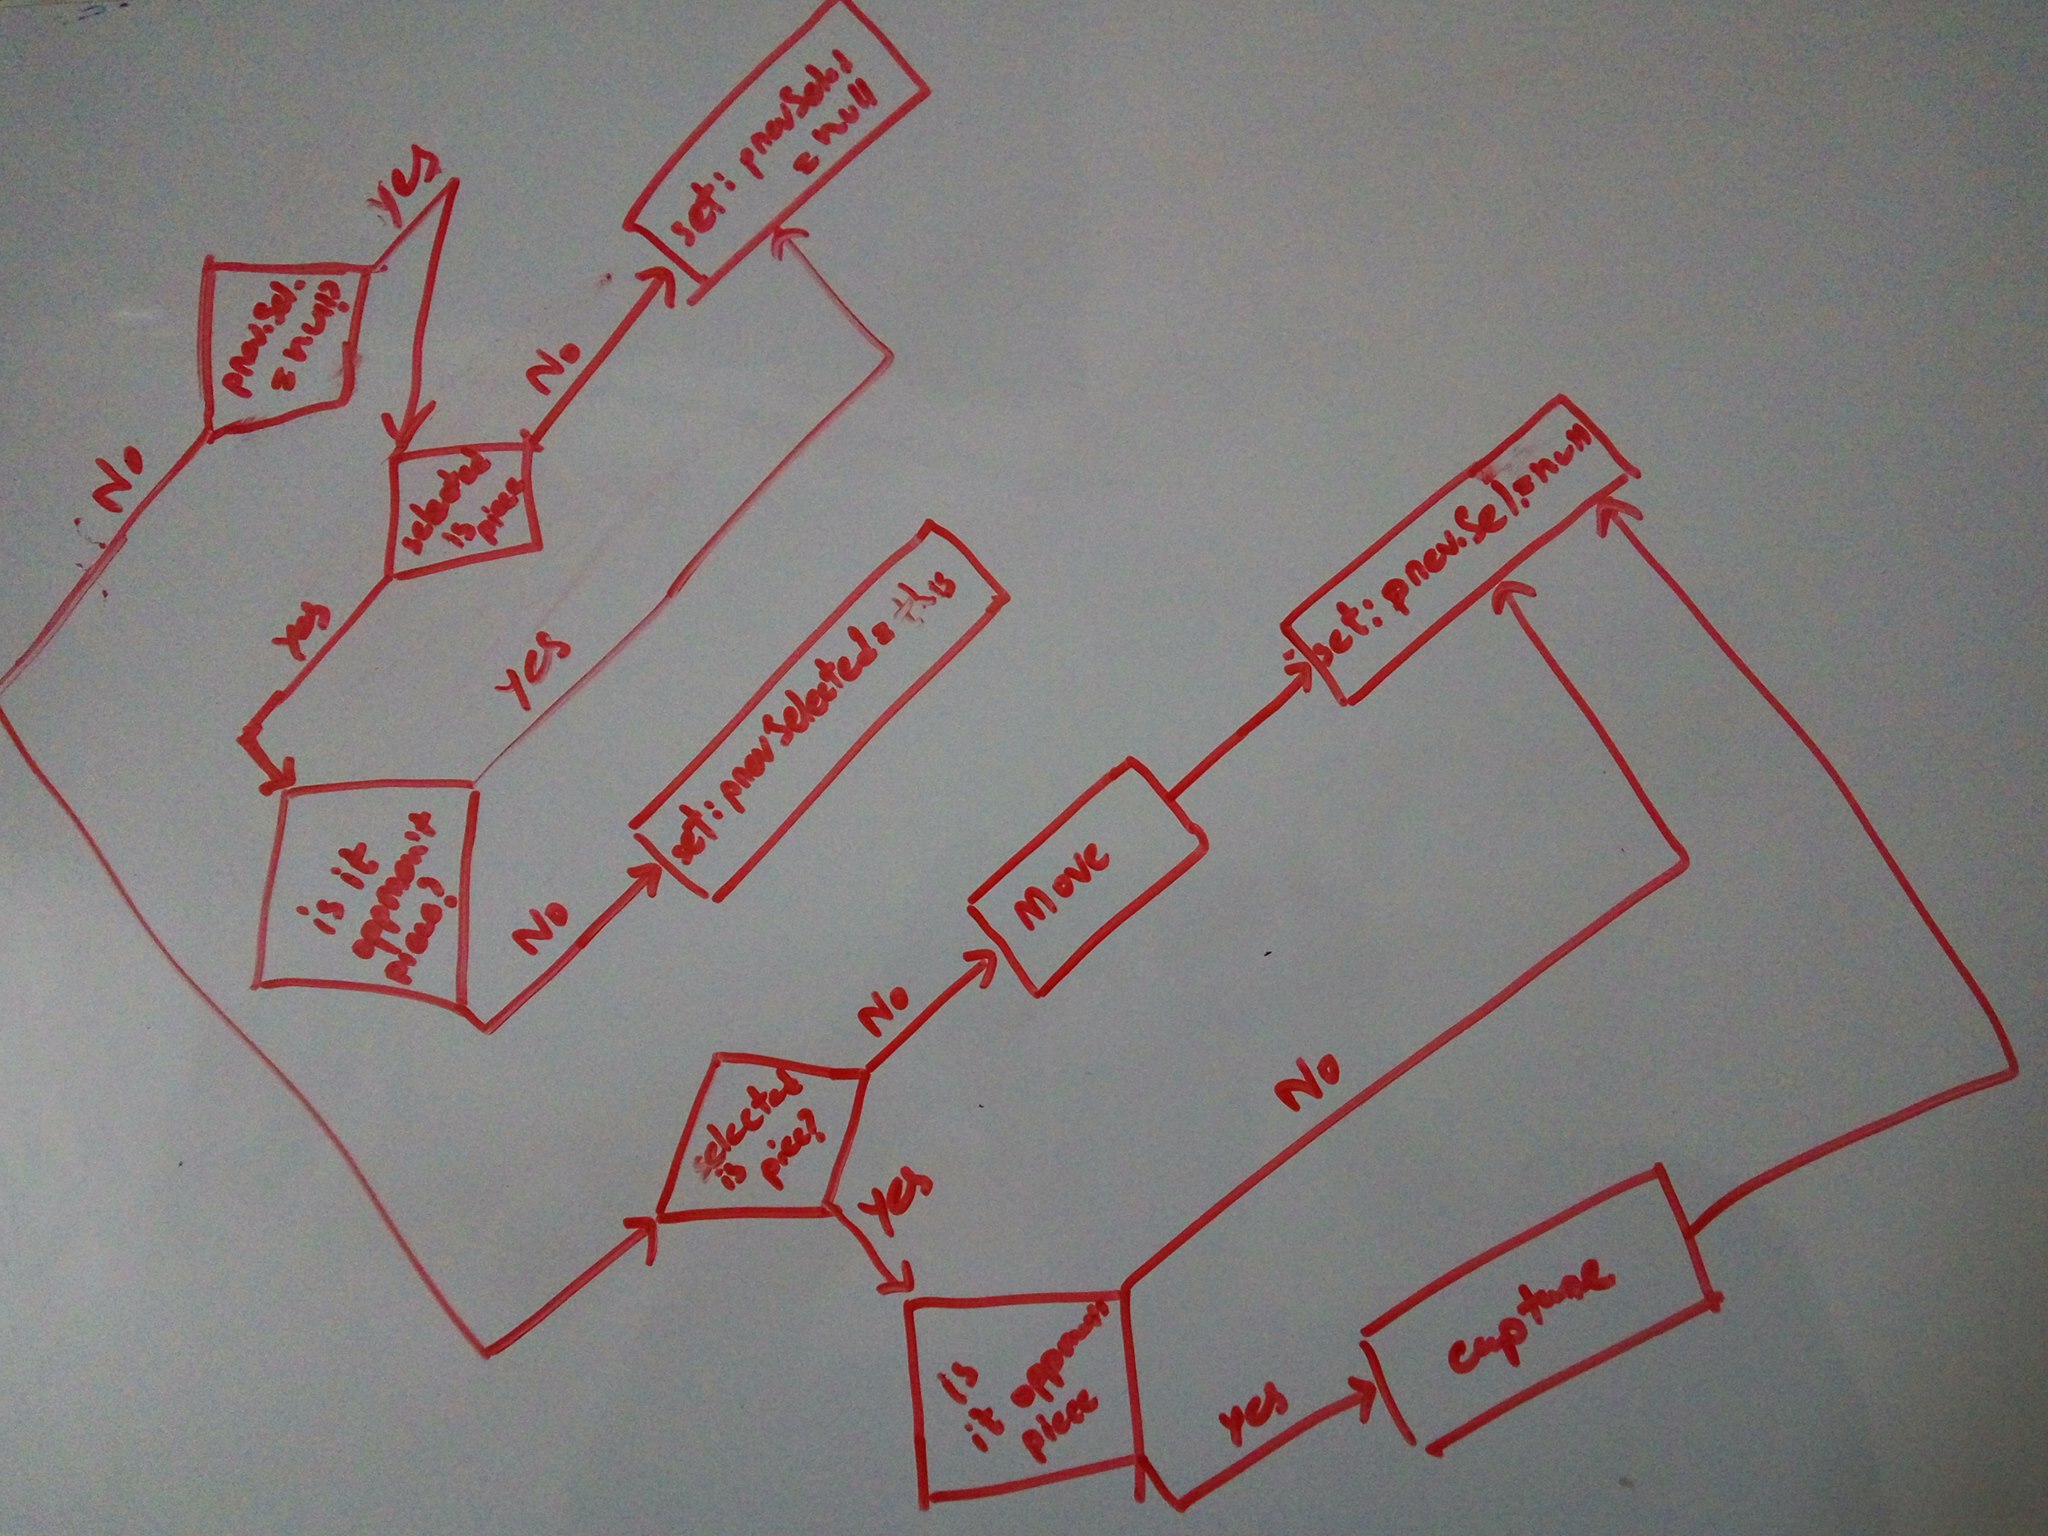 prev.Sel.
= null?
yes
No
selected
is
piece
No
set: prevSel.
= null
yes
is it
opponent
piece?
yes
No
set: prevSelected = this
selected
is
piece?
No
Move
set: prev.Sel. = null
yes
is
it opponent
piece
No
yes
capture